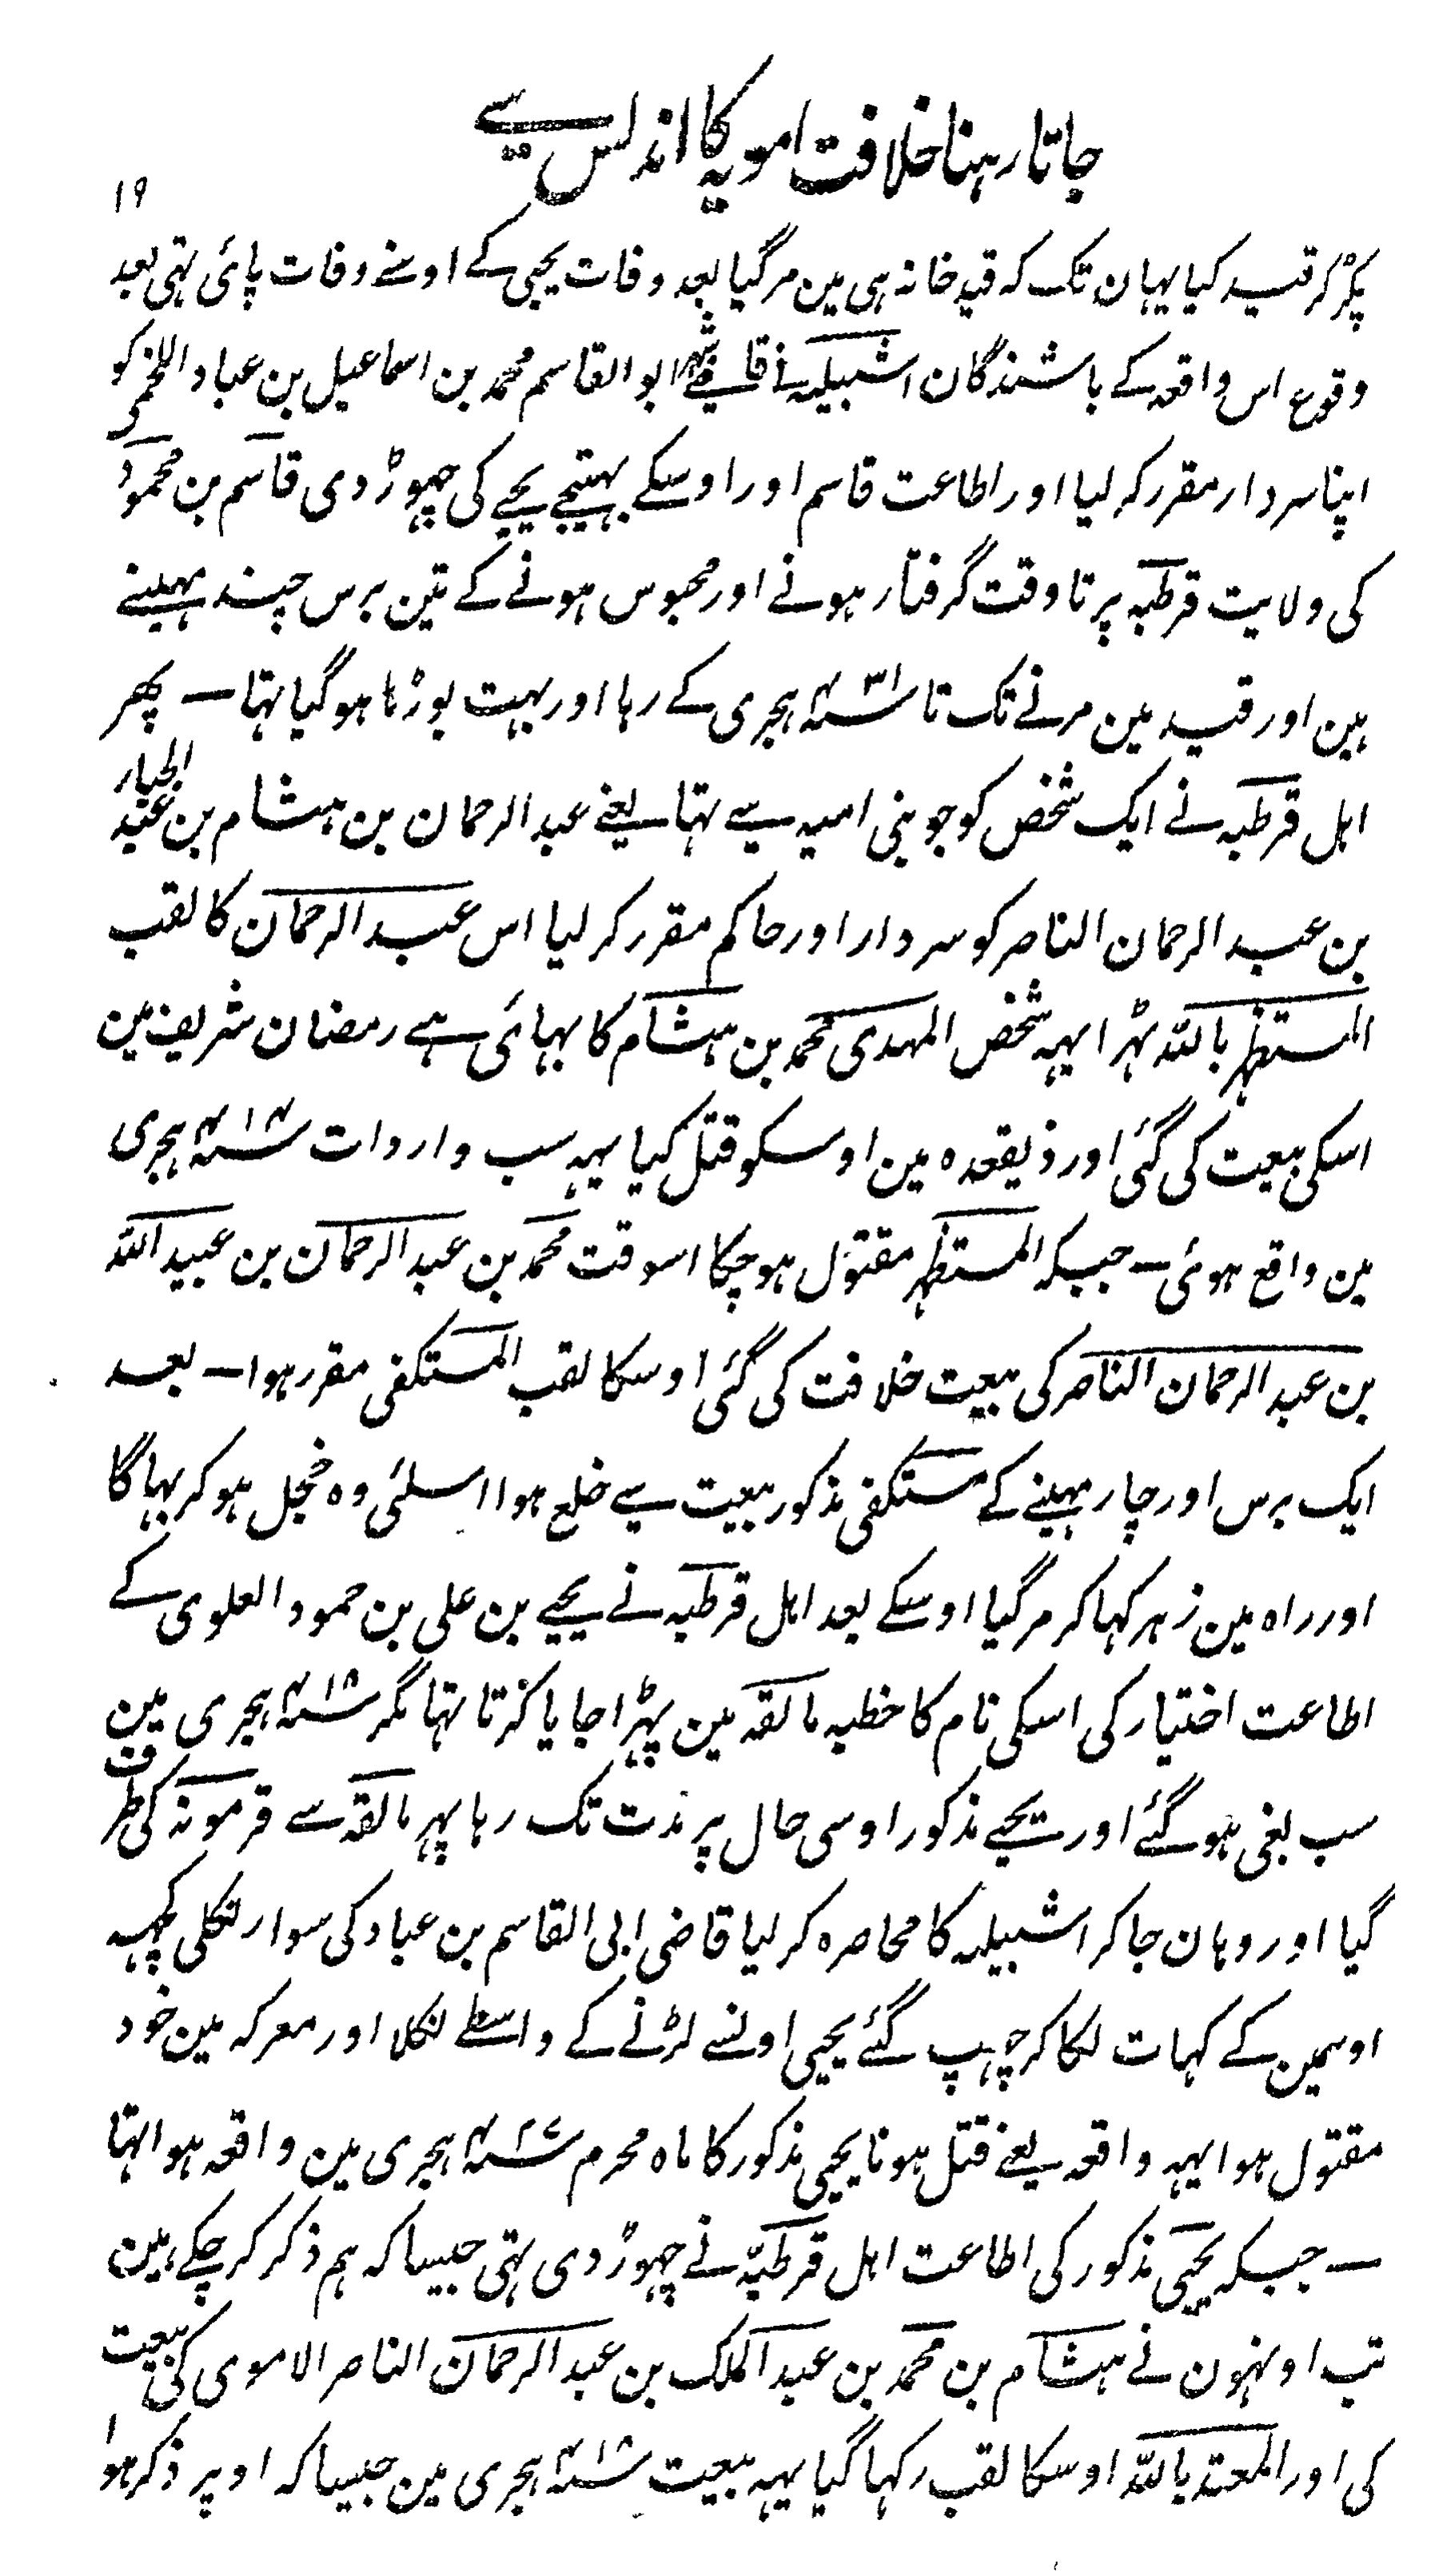 جاتا رہنا خلافت امویہ کا اندلس سے
۱۹
پکڑ کر قید کیا یہان تک کہ قید خانہ ہی مین مر گیا بعد وفات یحیی کے اوسنے وفات پائی تہی بعد
وقوع اس واقعہ کے باشندگان اشبیلیہ نے قاضے شہر ابو القاسم محمد بن اسماعیل بن عباد اللخمی کو
اپنا سردار مقرر کر لیا اور اطاعت قاسم اور اوسکے بہتیجے یحیے کی چہوڑ دی قاسم بن محمود
کی ولایت قرطبہ پر تا وقت گرفتار ہونے اور محبوس ہونے کے تین برس چند مہینے
ہین اور قید مین مرنے تک تا ۴۳۱؁ ہجری کے رہا اور بہت بوڑہا ہو گیا تہا — پھر
اہل قرطبہ نے ایک شخص کو جو بنی امیہ سے تہا یعنے عبد الرحمان بن ہشام بن عبد الجبار
بن عبد الرحمان الناصر کو سردار اور حاکم مقرر کر لیا اس عبد الرحمان کا لقب
المستظہر باللہ ٹہرا یہہ شخص المہدی محمد بن ہشام کا بہائی ہے رمضان شریف مین
اسکی بیعت کی گئی اور ذیقعدہ مین اوسکو قتل کیا یہہ سب واردات ۴۱۴؁ ہجری
مین واقع ہوئی — جبکہ المستظہر مقتول ہو چکا اسوقت محمد بن عبد الرحمان بن عبید اللہ
بن عبد الرحمان الناصر کی بیعت خلافت کی گئی اوسکا لقب المستکفی مقرر ہوا — بعد
ایک برس اور چار مہینے کے مستکفی مذکور بیعت سے خلع ہوا اسلئی وہ خجل ہو کر بہاگا
اور راہ مین زہر کہا کر مر گیا اوسکے بعد اہل قرطبہ نے یحیے بن علی بن حمود العلوی کے
اطاعت اختیار کی اسکی نام کا خطبہ مالقہ مین پہڑا جایا کرتا تہا مگر ۴۱۸؁ ہجری مین
سب بغی ہو گئے اور یحیے مذکور اوسی حال پر مدت تک رہا پہر مالقہ سے قرمونہ کی طرف
گیا اور وہان جا کر اشبیلیہ کا محاصرہ کر لیا قاضی ابی القاسم بن عباد کی سوار نکلی کچہہ
اوسمین کے کہات لگا کر چہپ گئے یحیی اونسے لڑنے کے واسطے نکلا اور معرکہ مین خود
مقتول ہوا یہہ واقعہ یعنے قتل ہونا یحیی مذکور کا ماہ محرم ۴۲۷؁ ہجری مین واقعہ ہوا تہا
— جبکہ یحیی مذکور کی اطاعت اہل قرطبہ نے چہوڑ دی تہی جیسا کہ ہم ذکر کر چکے ہین
تب اونہون نے ہشام بن محمد بن عبد الملک بن عبد الرحمان الناصر الاموی کی بیعت
کی اور المعتد باللہ اوسکا لقب رکہا گیا یہہ بیعت ۴۱۸؁ ہجری مین جیسا کہ اوپر ذکر ہوا